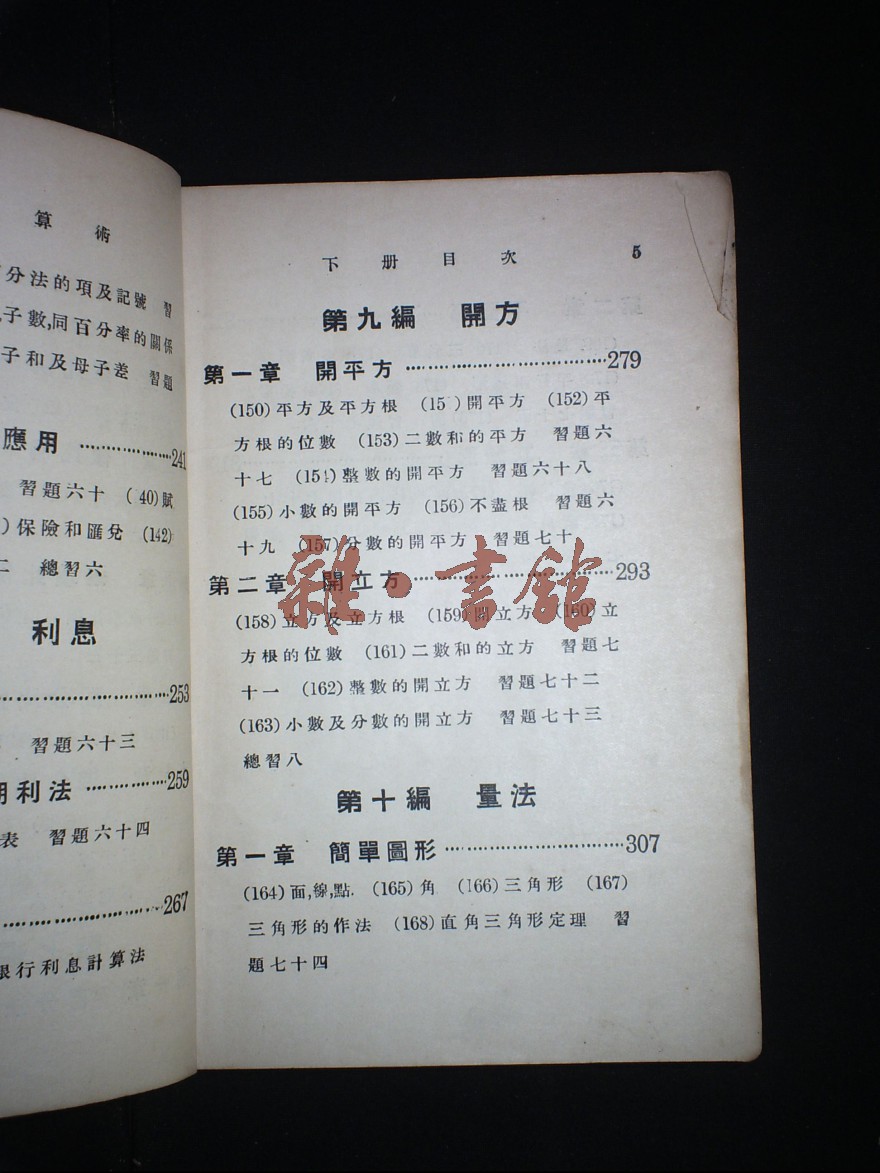 算 術
分法的項及記號 習
子數,同百分率的關係
子和及母子差 習題
應用 ……241
習題六十 ( 40)賦
)保險和匯兌 (142)
總習六
利息
……253
習題六十三
利法 ……259
表 習題六十四
……267
銀行利息計算法
下 册 目 次 5
第九編 開方
第一章 開平方 ……279
(150)平方及平方根 (15 )開平方 (152)平
方根的位數 (153)二數和的平方 習題六
十七 (154)整數的開平方 習題六十八
(155)小數的開平方 (156)不盡根 習題六
十九 (157)分數的開平方 習題七十
第二章 開立方 ……293
(158)立方及立方根 (159)開立方 (160)立
方根的位數 (161)二數和的立方 習題七
十一 (162)整數的開立方 習題七十二
(163)小數及分數的開立方 習題七十三
總習八
第十編 量法
第一章 簡單圖形 ……307
(164)面,線,點. (165)角 (166)三角形 (167)
三角形的作法 (168)直角三角形定理 習
題七十四
雜·書館